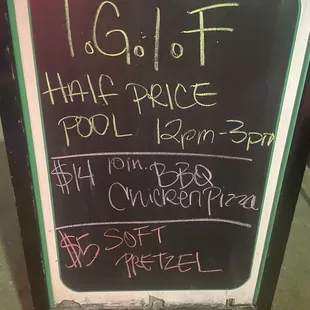 T.G.I.F
HALF PRICE
POOL 12pm-3pm
$14 10in. BBQ
Chicken Pizza
$5 SOFT
PRETZEL